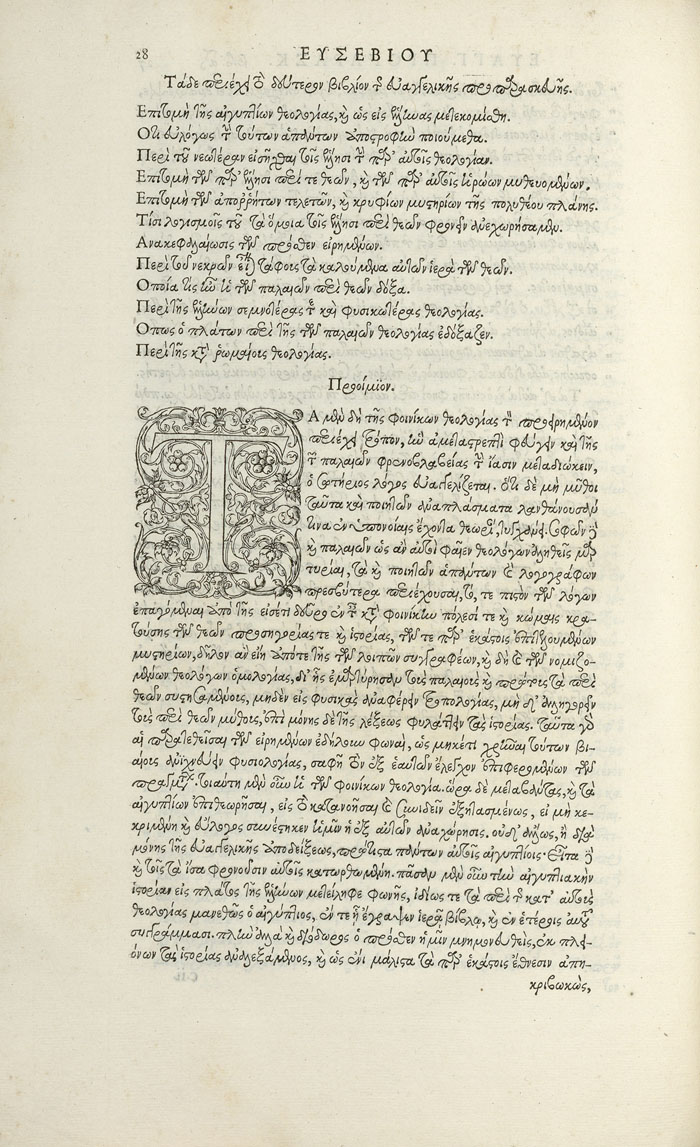 28 ΕΥΣΕΒΙΟΥ
Τάδε περιέχει τὸ δεύτερον βιβλίον τῆς εὐαγγελικῆς προπαρασκευῆς.
Επιτομὴ τῆς αἰγυπτίων θεολογίας, καὶ ὡς εἰς ἕλληνας μετεκομίσθη.
Οτι εὐλόγως τὴν τούτων ἁπάντων ἀποστροφὴν ποιούμεθα.
Περὶ τοῦ νεωτέραν εἰσῆχθαι τοῖς ἕλλησι τὴν παρ' αὐτοῖς θεολογίαν.
Επιτομὴ τῶν παρ' ἕλλησι περί τε θεῶν, καὶ τῶν παρ' αὐτοῖς ἡρώων μυθευομένων.
Επιτομὴ τῶν ἀποῤῥήτων τελετῶν, καὶ κρυφίων μυστηρίων τῆς πολυθέου πλάνης.
Τίσι λογισμοῖς τοῦ τὰ ὅμοια τοῖς ἕλλησι περὶ θεῶν φρονεῖν ἀνεχωρήσαμεν.
Ανακεφαλαίωσις τῶν πρόσθεν εἰρημένων.
Περὶ τοῦ νεκρῶν εἶναι τάφους τὰ καλούμενα αὐτῶν ἱερὰ τῶν θεῶν.
Οποία τις ἦν ἡ τῶν παλαιῶν περὶ θεῶν δόξα.
Περὶ τῆς ἑλλήνων σεμνοτέρας τε καὶ φυσικωτέρας θεολογίας.
Οπως ὁ πλάτων περὶ τῆς τῶν παλαιῶν θεολογίας ἐδόξαζεν.
Περὶ τῆς κατὰ ῥωμαίους θεολογίας.
Προοίμιον.
ΤΑ μὲν δὴ τῆς φοινίκων θεολογίας τὸν προειρημένον
περιέχει τρόπον, ἣν ἀμεταστρεπτὶ φεύγειν καὶ τῆς
τῶν παλαιῶν φρενοβλαβείας τὴν ἴασιν μεταδιώκειν,
ὁ σωτήριος λόγος εὐαγγελίζεται. ὅτι δὲ μὴ μῦθοι
ταῦτα καὶ ποιητῶν ἀναπλάσματα λανθάνουσάν
τινα ἐν ὑπονοίαις ἔχοντα θεωρίαν τυγχάνει, σοφῶν δὲ
καὶ παλαιῶν ὡς ἂν αὐτοὶ φαῖεν θεολόγων ἀληθεῖς μαρ-
τυρίαι, τὰ καὶ ποιητῶν ἁπάντων καὶ λογογράφων
πρεσβύτερα περιέχουσαι, τό, τε πιστὸν τῶν λόγων
ἐπαγόμεναι ἀπὸ τῆς εἰσέτι δεῦρο ἐν ταῖς κατὰ φοινίκην πόλεσί τε καὶ κώμαις κρα-
τούσης τῶν θεῶν προσηγορίας τε καὶ ἱστορίας, τῶν τε παρ' ἑκάστοις ἐπιτελουμένων
μυστηρίων, δῆλον ἂν εἴη ἀπό τε τῆς τῶν λοιπῶν συγγραφέων, καὶ δὴ καὶ τῶν νομιζο-
μένων θεολόγων ὁμολογίας, δι' ἧς ἐμαρτύρησαν τοὺς παλαιοὺς καὶ πρώτους τὰ περὶ
θεῶν συστησαμένους, μηδὲν εἰς φυσικὰς ἀναφέρειν τροπολογίας, μὴ δ' ἀλληγορεῖν
τοὺς περὶ θεῶν μύθους, ἐπὶ μόνης δὲ τῆς λέξεως φυλάττειν τὰς ἱστορίας. ταῦτα γὰρ
αἱ παρατεθεῖσαι τῶν εἰρημένων ἐδήλουν φωναί, ὡς μηκέτι χρῆναι τούτων βι-
αίους ἀνιχνεύειν φυσιολογίας, σαφῆ τὸν ἐξ ἑαυτῶν ἔλεγχον ἐπιφερομένων τῶν
πραγμάτων. τοιαύτη μὲν οὖν ἡ τῶν φοινίκων θεολογία. ὥρα δὲ μεταβάντας, καὶ τὰ
αἰγυπτίων ἐπιθεωρῆσαι, εἰς τὸ κατανοῆσαι καὶ συνιδεῖν ἐξητασμένως, εἰ μὴ κε-
κριμένη καὶ εὔλογος συνέστηκεν ἡμῖν ἡ ἐξ αὐτῶν ἀναχώρησις. οὐδ' ἄλλως, ἢ διὰ
μόνης τῆς εὐαγγελικῆς ἀποδείξεως, πρώτιστα πάντων αὐτοῖς αἰγυπτίοις· εἶτα δὲ
καὶ τοῖς τὰ ἴσα φρονοῦσιν αὐτοῖς κατωρθωμένη. πᾶσαν μὲν οὖν τὴν αἰγυπτιακὴν
ἱστορίαν εἰς πλάτος τῆς ἑλλήνων μετείληφε φωνῆς, ἰδίως τε τὰ περὶ τῆς κατ' αὐτοὺς
θεολογίας μανεθῶς ὁ αἰγύπτιος, ἔν τε ᾗ ἔγραψεν ἱερᾷ βίβλῳ, καὶ ἐν ἑτέροις αὐτοῦ
συγγράμμασι. πλὴν ἀλλὰ καὶ διόδωρος ὁ πρόσθεν ἡμῖν μνημονευθείς, ἐκ πλει-
όνων τὰς ἱστορίας ἀναλεξάμενος, καὶ ὡς ἔνι μάλιστα τὰ παρ' ἑκάστοις ἔθνεσιν ἀπη-
κριβωκώς,